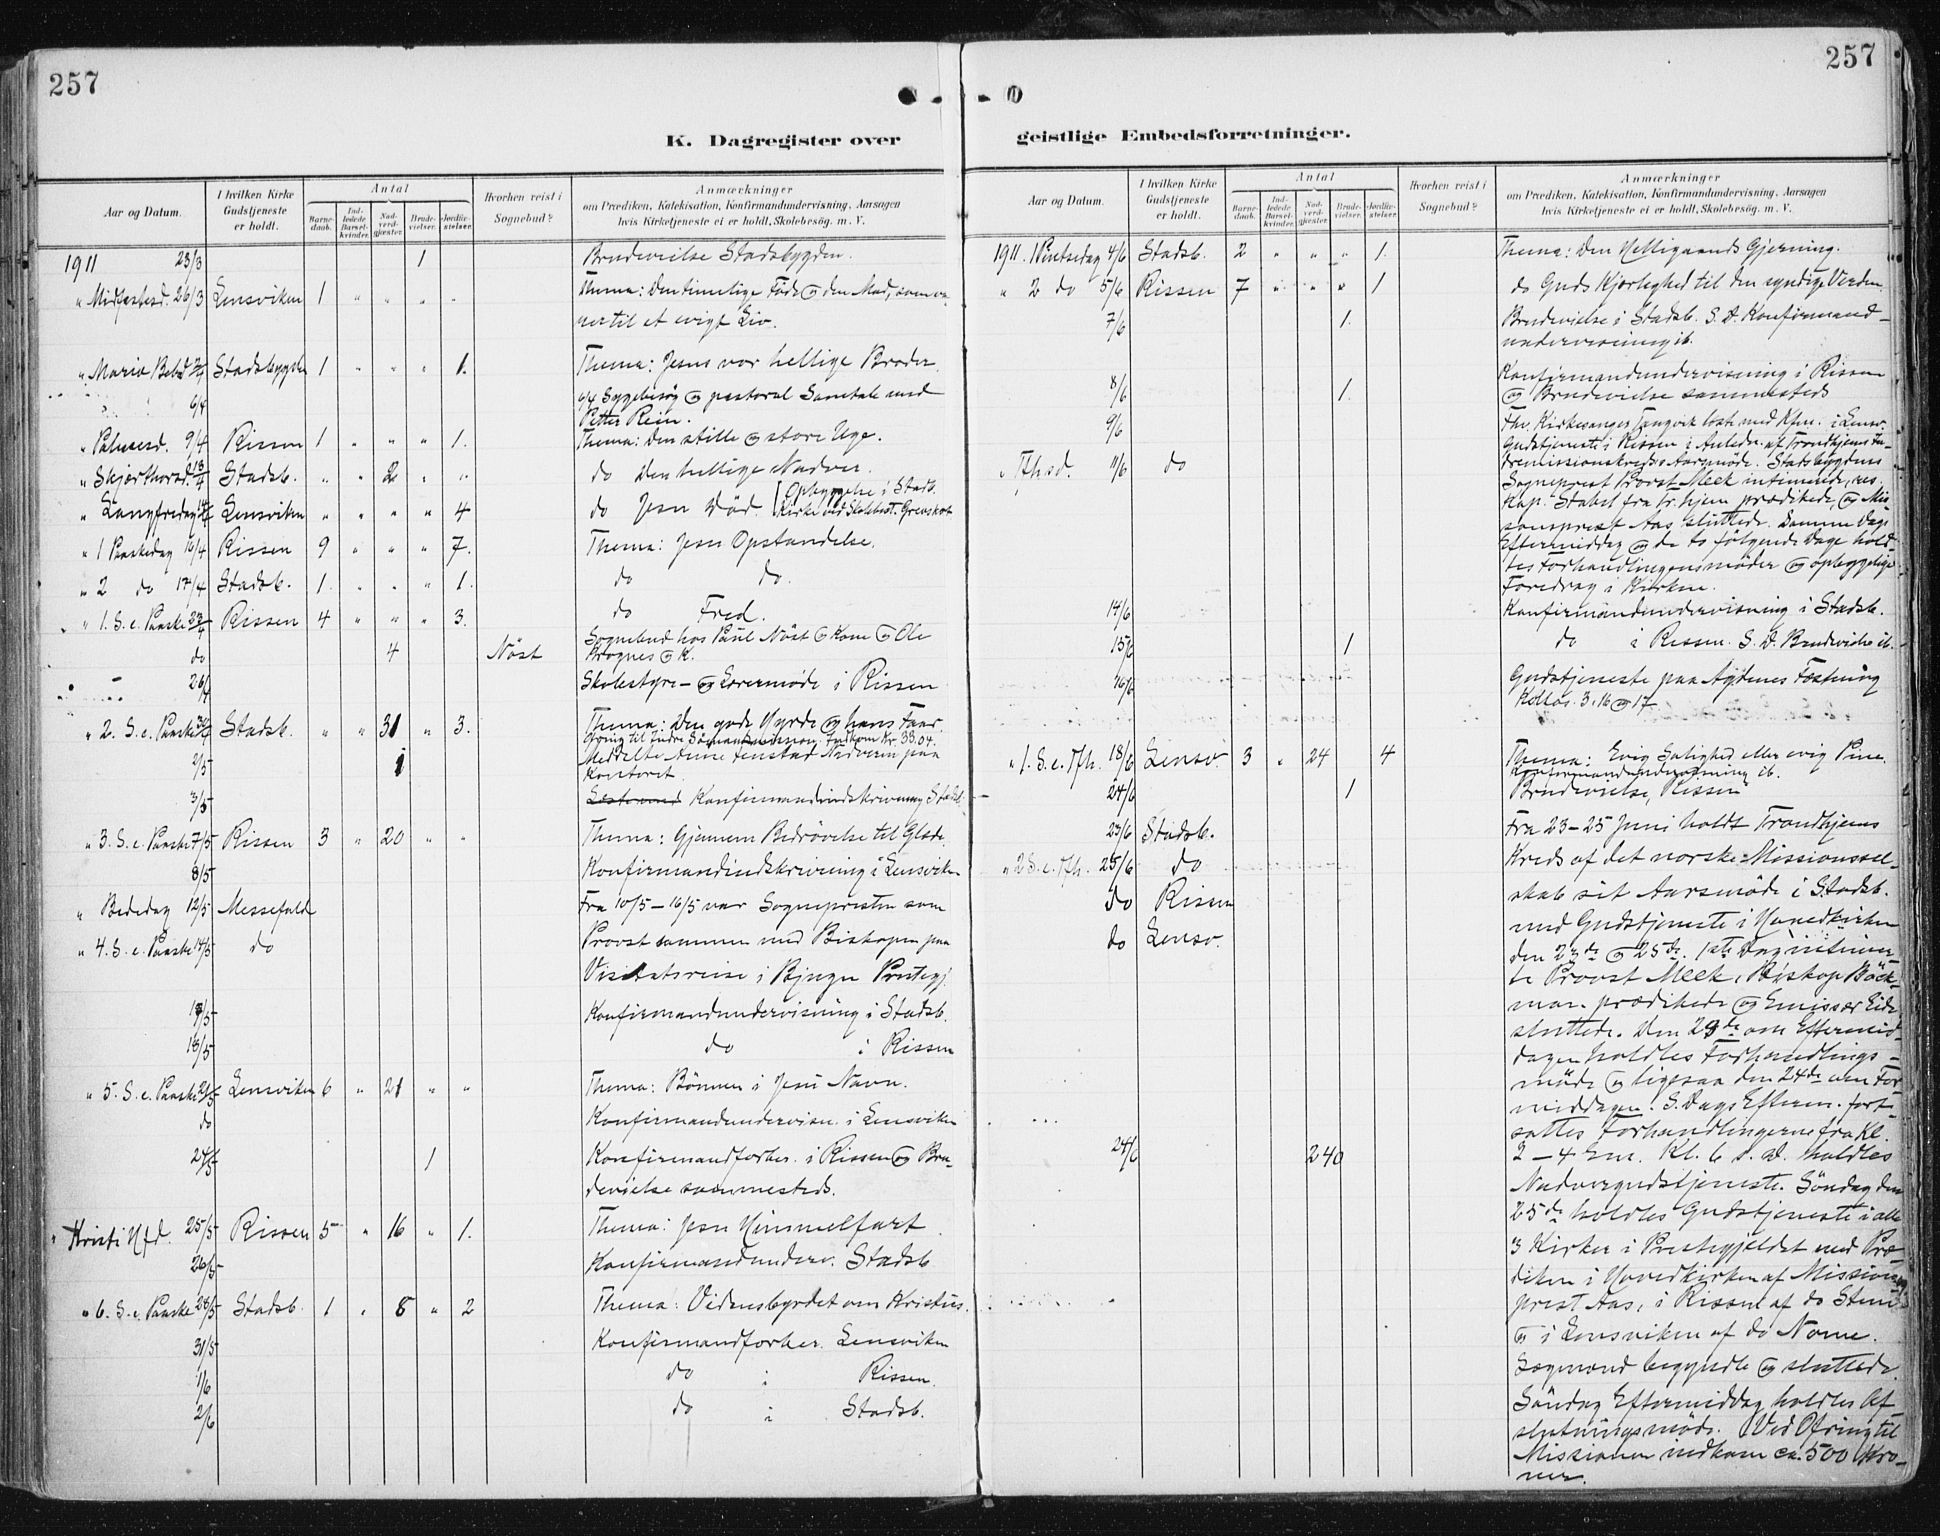 257
257
K. Dagregister over
geistlige Embedsforretninger.
Aar og Datum.
I hvilken Kirke Gudstjeneste er holdt.
Antal
Barnedaab.
Indledede Barselkvinder.
Nadverdgjæster.
Brudevielser.
Jordfæstelser.
Hvorhen reist i Sognebud?
Anmærkninger
om Prædiken, Katekisation, Konfirmandundervisning, Aarsagen
hvis Kirketjeneste ei er holdt, Skolebesøg. m. V.
1911 23/3 1 Brudevielse Stadsbygden.
" Midfastesd. 26/3 Lensviken 1 " " " " Thema: Den timelige Føde og den Mad, som va-
rer til et evigt Liv.
" Mariæ Bebd Stadsbygden 1 " " " 1. Thema: Jesus vor hellige Broder
6/4 6/4 Sygebesøg og pastoral Samtale med
Petter Rein.
" Palmesd. 9/4 Rissen 1 " " " 1. Thema: Den stille og store Uge.
" Skjærthorsd. 13/4 Stadsb. " " 2 " " do Den hellige Nadver.
" Langfredag 14/4 Lensviken " " " " 4 do Jesu Død. [Opbyggelse i Stads.
Kirke ved Skolebest. Grønskot
" 1 Paaskedag 16/4 Rissen 9 " " " 7. Thema: Jesu Opstandelse.
" 2 do 17/4 Stadsb. 1. " " " 1. do do.
" 1. S. e. Paaske 23/4 Rissen 4 " " " 3. do Fred.
do 4 Nöst Sognebud hos Paul Nöst og Kone og Ole
Brognes og K.
26/4 Skolestyre- og Lærermøde i Rissen
" 2. S. e. Paaske 30/4 Stadsb. " " 31 " 3. Thema: Den gode Hyrde og hans Faar
Ofring til Indre Sømandsmission. Indkom Kr. 33.04.
2/5 1 Meddelte Anne Fenstad Nadveren paa
Kontoret.
3/5 Konfirmandindskrivning Stadsb.
" 3. S. e. Paaske 7/5 Rissen 3 " 20 " " Thema: Gjennem Bedrøvelse til Glæde.
8/5 Konfirmandindskrivning i Lensviken
" Bededag 12/5 Messefald Fra 10/5 - 16/5 var Sognepresten som
" 4. S. e. Paaske 14/5 do Provst sammen med Biskopen paa
Visitatsreise i Bjugn Prestegj.
Konfirmandundervisning i Stadsb.
18/5 do i Rissen
" 5. S. e. Paaske 21/5 Lensviken 6 " 21 " " Thema: Bönnen i Jesu Navn.
do Konfirmandundervisn. i Lensviken
24/5 1 Konfirmandforber. i Rissen og Bru-
devielse sammesteds.
" Kristi Hfd. 25/5 Rissen 5 " 16 " 1. Thema: Jesu Himmelfart
26/5 Konfirmandunderv. Stadsb
" 6. S. e. Paaske 28/5 Stadsb. 1 " 8 " 2 Thema: Vidensbyrdet om Kristus.
31/5 Konfirmandforber. Lensviken
1/6 do i Rissen.
2/6 do i Stadsb.
Aar og Datum.
I hvilken Kirke Gudstjeneste er holdt.
Antal
Barnedaab.
Indledede Barselkvinder.
Nadverdgjæster.
Brudevielser.
Jordfæstelser.
Hvorhen reist i Sognebud?
Anmærkninger
om Prædiken, Katekisation, Konfirmandundervisning, Aarsagen
hvis Kirketjeneste ei er holdt, Skolebesøg. m. V.
1911. 1 Pintsedag 4/6 Stadsb. 2 " " " 1. Thema: Den Helligaands Gjerning.
" 2 do 5/6 Rissen 7 " " " 1 do Guds Kjærlighed til den syndige Verden
7/6 1. Brudevielse i Stadsb. S. D. Konfirmand-
undervisning ib.
8/6 1. Konfirmandundervisning i Rissen
og Brudevielse sammesteds
9/6 Fhv. Kirkesanger Tangvik læste med Kfm. i Lensv.
" Trfh.sd. 11/6 do Gudstjeneste i Rissen i Anledn. af Trondhjems In-
dremissionskreds's Aarsmøde. Stadsbygdens
Sogneprest Provst Meek intimerede, res.
Kap. Stabel fra Tr.hjem prædikede, og Mis-
sionsprest Aas sluttede. Samme Dags
Eftermiddag og de to følgende Dage hold-
tes Forhandlingensmøder og opbyggelige
Foredrag i Kirken.
14/6 Konfirmandundervisning i Stadsb.
15/6 1 do i Rissen. S. D. Brudevielse ib.
16/6 Gudstjeneste paa Agdenes Fæstning
Kollos. 3, 16 og 17
" 1. S. e. Trfh. 18/6 Lensv. 3 " 24 4 Thema: Evig Salighed eller evig Pine.
Konfirmandundervisning ib.
24/6 1 Brudevielse, Rissen
23/6 Stadsb. Fra 23-25 Juni holdt Trondhjems
" 2 S. e. Trfh. 25/6 do Kreds af det norske Missionssel-
do Rissen skab sit Aarsmøde i Stadsb.
do Lensv. med Gudstjeneste i Hovedkirken
den 23de og 25de. 1ste Dag intimer-
te Provst Meek, Biskop Böck-
man prædikede og Emissær Eide
sluttede. Den 23de om Eftermid-
dagen holdtes Forhandlings-
møde og ligesaa den 24de om For-
middagen. S. Dags Efterm. fort-
sattes Forhandlingerne fra Kl.
24/6 240 2-4 Em. Kl. 6 s. D. holdtes
Nadvergudstjeneste. Söndag den
25de holdtes Gudstjeneste i alle
3 Kirker i Prestegjeldet med Præ-
diken i Hovedkirken af Missions-
prest Aas, i Rissen af do Stene
og i Lensviken af do Nome.
Sognemand begyndte og sluttede.
Söndag Eftermiddag holdtes Af-
slutningsmøde. Ved Ofring til
Missionen indkom ca. 500 Kro-
ner.